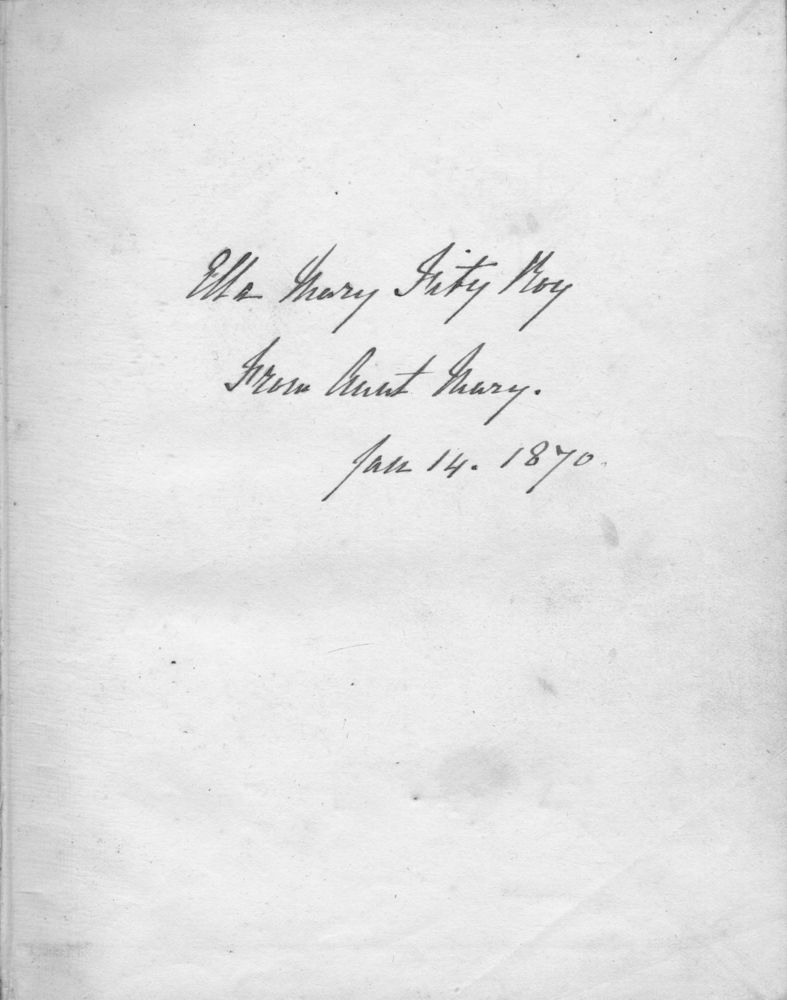 Ella Mary Fitz Roy
From Aunt Mary.
Jan 14. 1870.